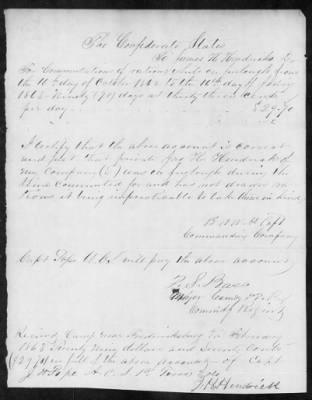 The Confederate States
To James H. Hendricks Dr
For Commutation of rations while on furlough from
the 16th day of October 1862 to the 16th day of Jany
1863 Ninety (90) days at thirty three cents
per day $29.70
I certify that the above account is correct
and just that private Jas H. Hendricks of
my Company (E) was on furlough during the
time commuted for and has not drawn ra
tions it being impracticable to take them in kind
Commanding Company
Capt Pope A.C.S. will pay the above account
F. S. Bass
Major Comdg 1st Tex Regt
Comndg Regiment
Received Camp near Fredericksburg Febuary
1863 Twenty Nine dollars and Seventy Cents
($29.70) in full of the above account of Capt
J W Pope A.C.S. 1st Texas Vols
J H Hendricks